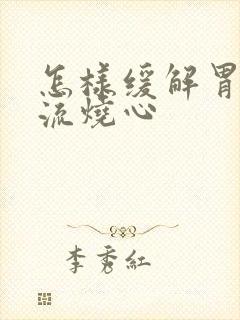 怎樣緩解胃
流燒心
李秀紅